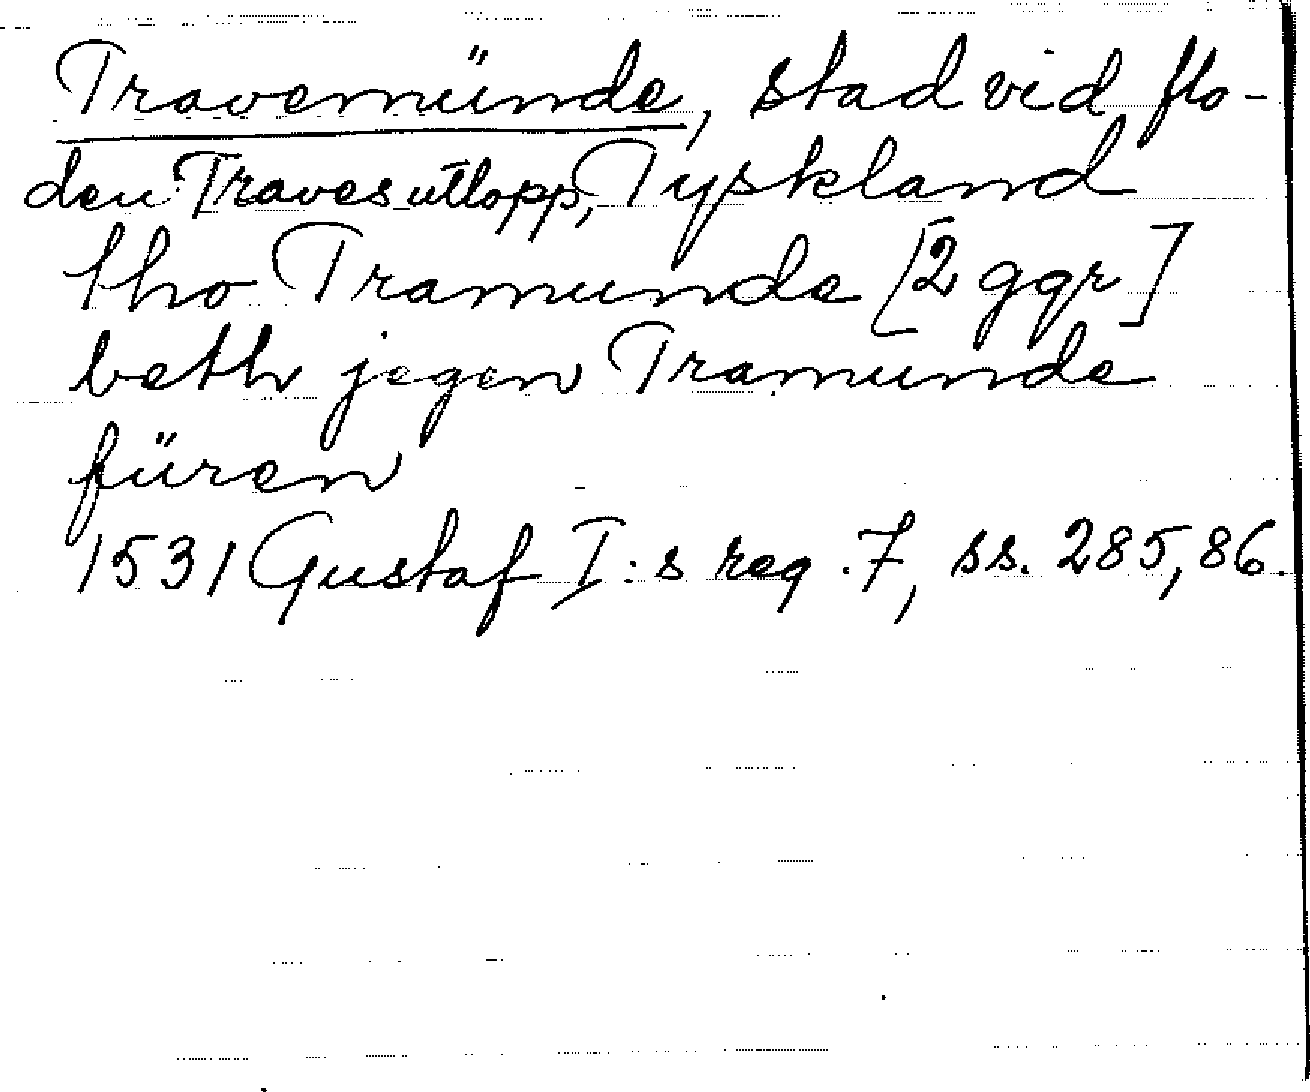 Travemünde, stad vid flo-
den Traves utlopp, Tyskland
tho Tramunde [2 ggr]
beth jegen Tramunde
füren
1531 Gustaf I:s reg. 7, ss. 285,86.